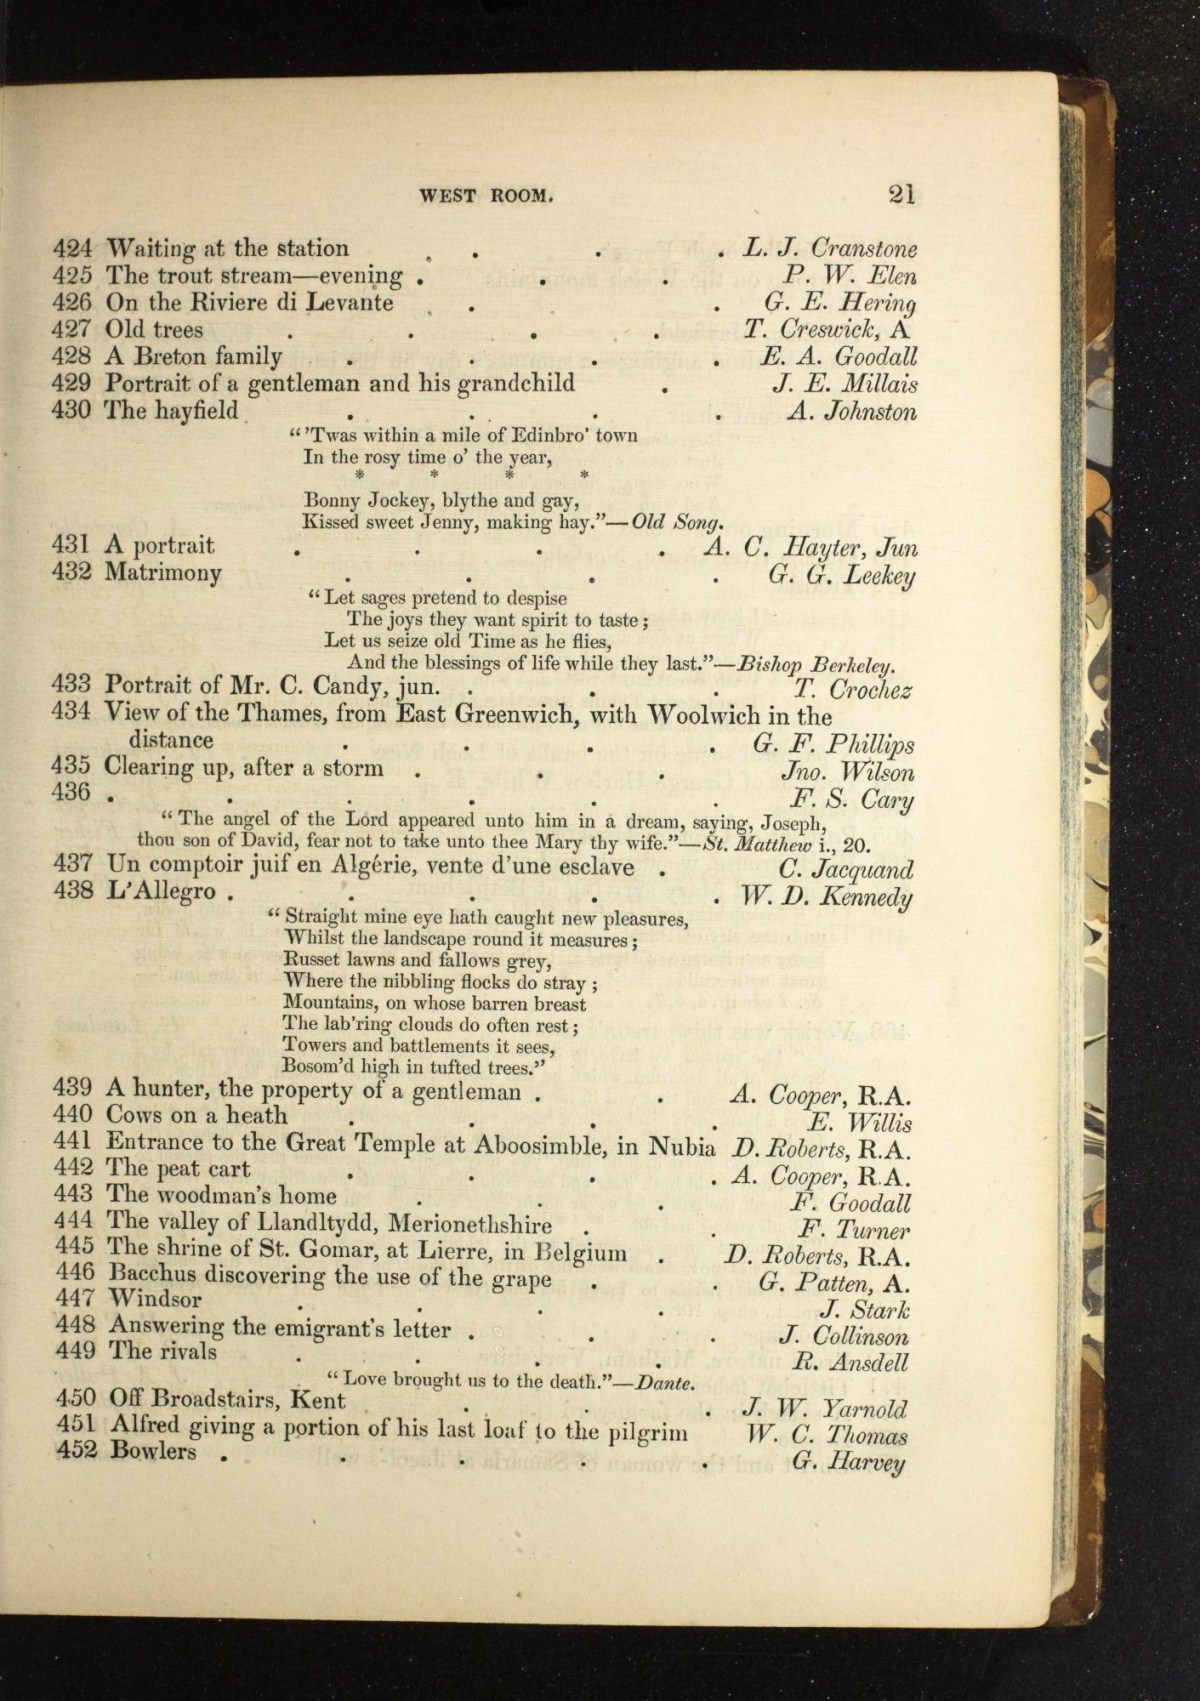 WEST ROOM. 21
424 Waiting at the station . . . . L. J. Cranstone
425 The trout stream—evening . . . P. W. Elen
426 On the Riviere di Levante . . . G. E. Hering
427 Old trees . . . . T. Creswick, A
428 A Breton family . . . . E. A. Goodall
429 Portrait of a gentleman and his grandchild . J. E. Millais
430 The hayfield . . . . A. Johnston
“ ’Twas within a mile of Edinbro’ town
In the rosy time o’ the year,
* * * *
Bonny Jockey, blythe and gay,
Kissed sweet Jenny, making hay.”—Old Song.
431 A portrait . . . . A. C. Hayter, Jun
432 Matrimony . . . . G. G. Leekey
“ Let sages pretend to despise
The joys they want spirit to taste ;
Let us seize old Time as he flies,
And the blessings of life while they last.”—Bishop Berkeley.
433 Portrait of Mr. C. Candy, jun. . . . T. Crochez
434 View of the Thames, from East Greenwich, with Woolwich in the
distance . . . . G. F. Phillips
435 Clearing up, after a storm . . . Jno. Wilson
436 . . . . . . F. S. Cary
“ The angel of the Lord appeared unto him in a dream, saying, Joseph,
thou son of David, fear not to take unto thee Mary thy wife.”—St. Matthew i., 20.
437 Un comptoir juif en Algérie, vente d’une esclave . C. Jacquand
438 L’Allegro . . . . . W. D. Kennedy
“ Straight mine eye hath caught new pleasures,
Whilst the landscape round it measures ;
Russet lawns and fallows grey,
Where the nibbling flocks do stray ;
Mountains, on whose barren breast
The lab’ring clouds do often rest ;
Towers and battlements it sees,
Bosom’d high in tufted trees.”
439 A hunter, the property of a gentleman . . A. Cooper, R.A.
440 Cows on a heath . . . . E. Willis
441 Entrance to the Great Temple at Aboosimble, in Nubia D. Roberts, R.A.
442 The peat cart . . . . A. Cooper, R.A.
443 The woodman’s home . . . F. Goodall
444 The valley of Llandltydd, Merionethshire . . F. Turner
445 The shrine of St. Gomar, at Lierre, in Belgium . D. Roberts, R.A.
446 Bacchus discovering the use of the grape . . G. Patten, A.
447 Windsor . . . . J. Stark
448 Answering the emigrant’s letter . . . J. Collinson
449 The rivals . . . . R. Ansdell
“ Love brought us to the death.”—Dante.
450 Off Broadstairs, Kent . . . J. W. Yarnold
451 Alfred giving a portion of his last loaf to the pilgrim W. C. Thomas
452 Bowlers . . . . . G. Harvey